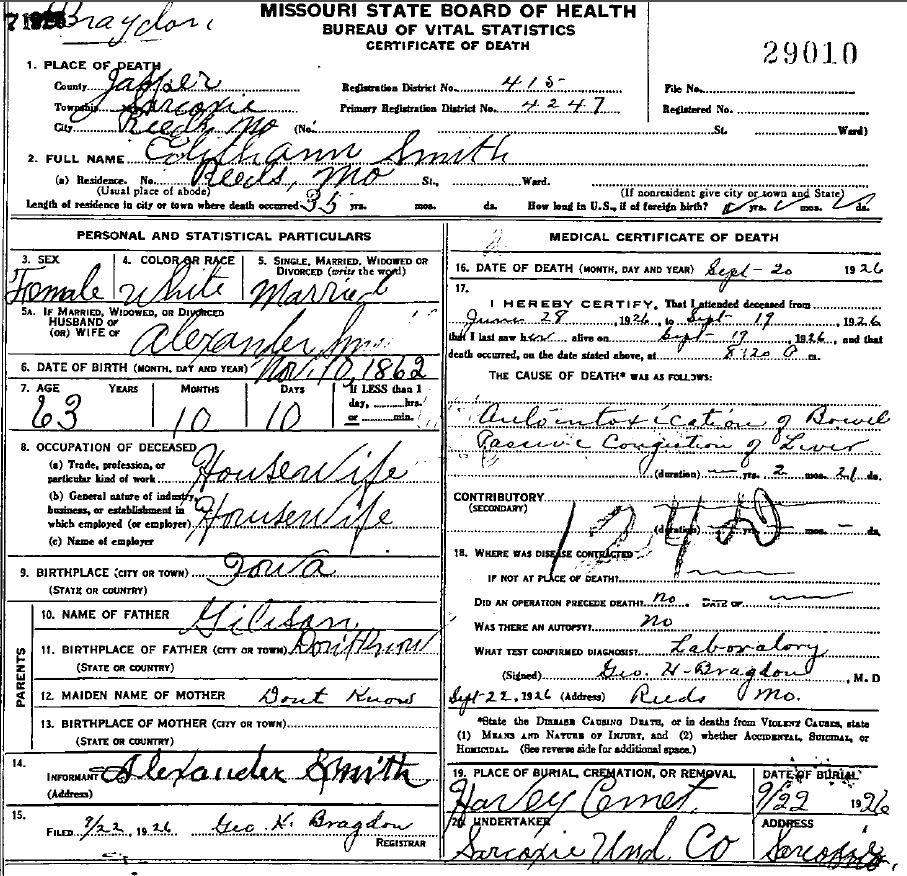 7 1926 Bragdon
MISSOURI STATE BOARD OF HEALTH
BUREAU OF VITAL STATISTICS
CERTIFICATE OF DEATH
29010
1. PLACE OF DEATH
County Jasper Registration District No. 415 File No.
Township Sarcoxie Primary Registration District No. 4247 Registered No.
City Reeds, Mo (No. St. Ward)
2. FULL NAME Smith
(a) Residence. No. Reeds, Mo St., Ward.
(Usual place of abode) (If nonresident give city or town and State)
Length of residence in city or town where death occurred 35 yrs. mos. ds. How long in U.S., if of foreign birth? yrs. mos. ds.
PERSONAL AND STATISTICAL PARTICULARS
3. SEX 4. COLOR OR RACE 5. SINGLE, MARRIED, WIDOWED OR
DIVORCED (write the word)
Female White Married
5A. IF MARRIED, WIDOWED, OR DIVORCED
HUSBAND OF
(OR) WIFE OF Alexander
6. DATE OF BIRTH (MONTH, DAY AND YEAR) Nov. 10, 1862
7. AGE YEARS MONTHS DAYS If LESS than 1
day, hrs.
or min.
63 10 10
8. OCCUPATION OF DECEASED
(a) Trade, profession, or
particular kind of work Housewife
(b) General nature of industry,
business, or establishment in
which employed (or employer) Housewife
(c) Name of employer
9. BIRTHPLACE (CITY OR TOWN) Iowa
(STATE OR COUNTRY)
PARENTS
10. NAME OF FATHER
11. BIRTHPLACE OF FATHER (CITY OR TOWN) Don't Know
(STATE OR COUNTRY)
12. MAIDEN NAME OF MOTHER Dont Know
13. BIRTHPLACE OF MOTHER (CITY OR TOWN)
(STATE OR COUNTRY)
14.
INFORMANT Alexander Smith
(Address)
15.
FILED 9/22, 1926 Geo H. Bragdon
REGISTRAR
MEDICAL CERTIFICATE OF DEATH
16. DATE OF DEATH (MONTH, DAY AND YEAR) Sept - 20 1926
17.
I HEREBY CERTIFY, That I attended deceased from
June 28, 1926, to Sept 19, 1926
that I last saw her alive on Sept 19, 1926, and that
death occurred, on the date stated above, at 8:20 m.
THE CAUSE OF DEATH* WAS AS FOLLOWS:
Autointoxication of Bowel
Passive Congestion of Liver
(duration) — yrs. 2 mos. 21 ds.
CONTRIBUTORY
(SECONDARY)
(duration) yrs. mos. — ds.
18. WHERE WAS DISEASE CONTRACTED
IF NOT AT PLACE OF DEATH?
DID AN OPERATION PRECEDE DEATH? no DATE OF
WAS THERE AN AUTOPSY? no
WHAT TEST CONFIRMED DIAGNOSIS? Laboratory
(Signed) Geo. H. Bragdon, M. D
Sept 22, 1926 (Address) Reeds Mo.
*State the DISEASE CAUSING DEATH, or in deaths from VIOLENT CAUSES, state
(1) MEANS AND NATURE OF INJURY, and (2) whether ACCIDENTAL, SUICIDAL, or
HOMICIDAL. (See reverse side for additional space.)
19. PLACE OF BURIAL, CREMATION, OR REMOVAL DATE OF BURIAL
Harley Cemet. 9/22 1926
20. UNDERTAKER ADDRESS
Sarcoxie Und. Co Sarcoxie